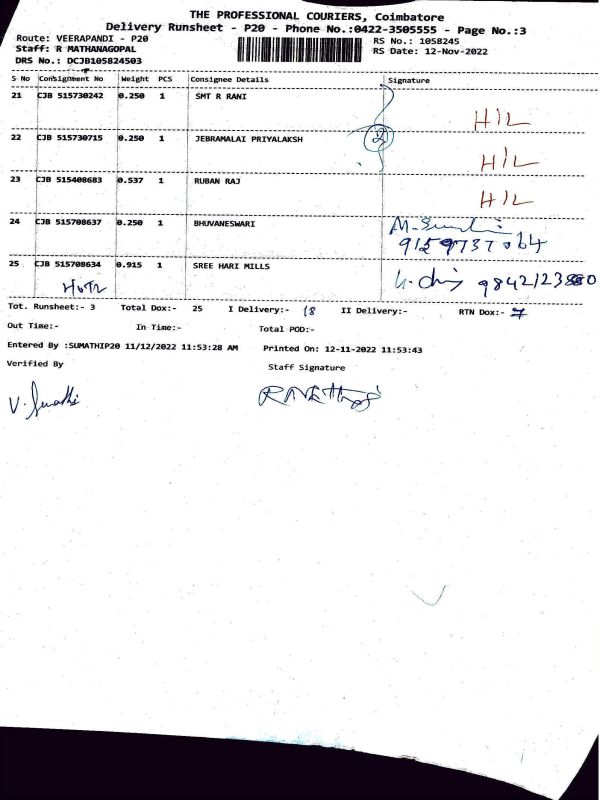 THE PROFESSIONAL COURIERS, Coimbatore
Delivery Runsheet - P20 - Phone No.:0422-3505555 - Page No.:3
Route: VEERAPANDI - P20 RS No.: 1058245
Staff: R MATHANAGOPAL RS Date: 12-Nov-2022
DRS No.: DCJB105824503
S No Consignment No Weight PCS Consignee Details Signature
21 CJB 515730242 0.250 1 SMT R RANI
H/L
22 CJB 515730715 0.250 1 JEBRAMALAI PRIYALAKSH 2
H/L
23 CJB 515408683 0.537 1 RUBAN RAJ
H/L
24 CJB 515708637 0.250 1 BHUVANESWARI
9159737064
25 CJB 515708634 0.915 1 SREE HARI MILLS
Tot. Runsheet:- 3 Total Dox:- 25 I Delivery:- 18 II Delivery:- RTN Dox:- 7
Out Time:- In Time:- Total POD:-
Entered By :SUMATHIP20 11/12/2022 11:53:28 AM Printed On: 12-11-2022 11:53:43
Verified By Staff Signature